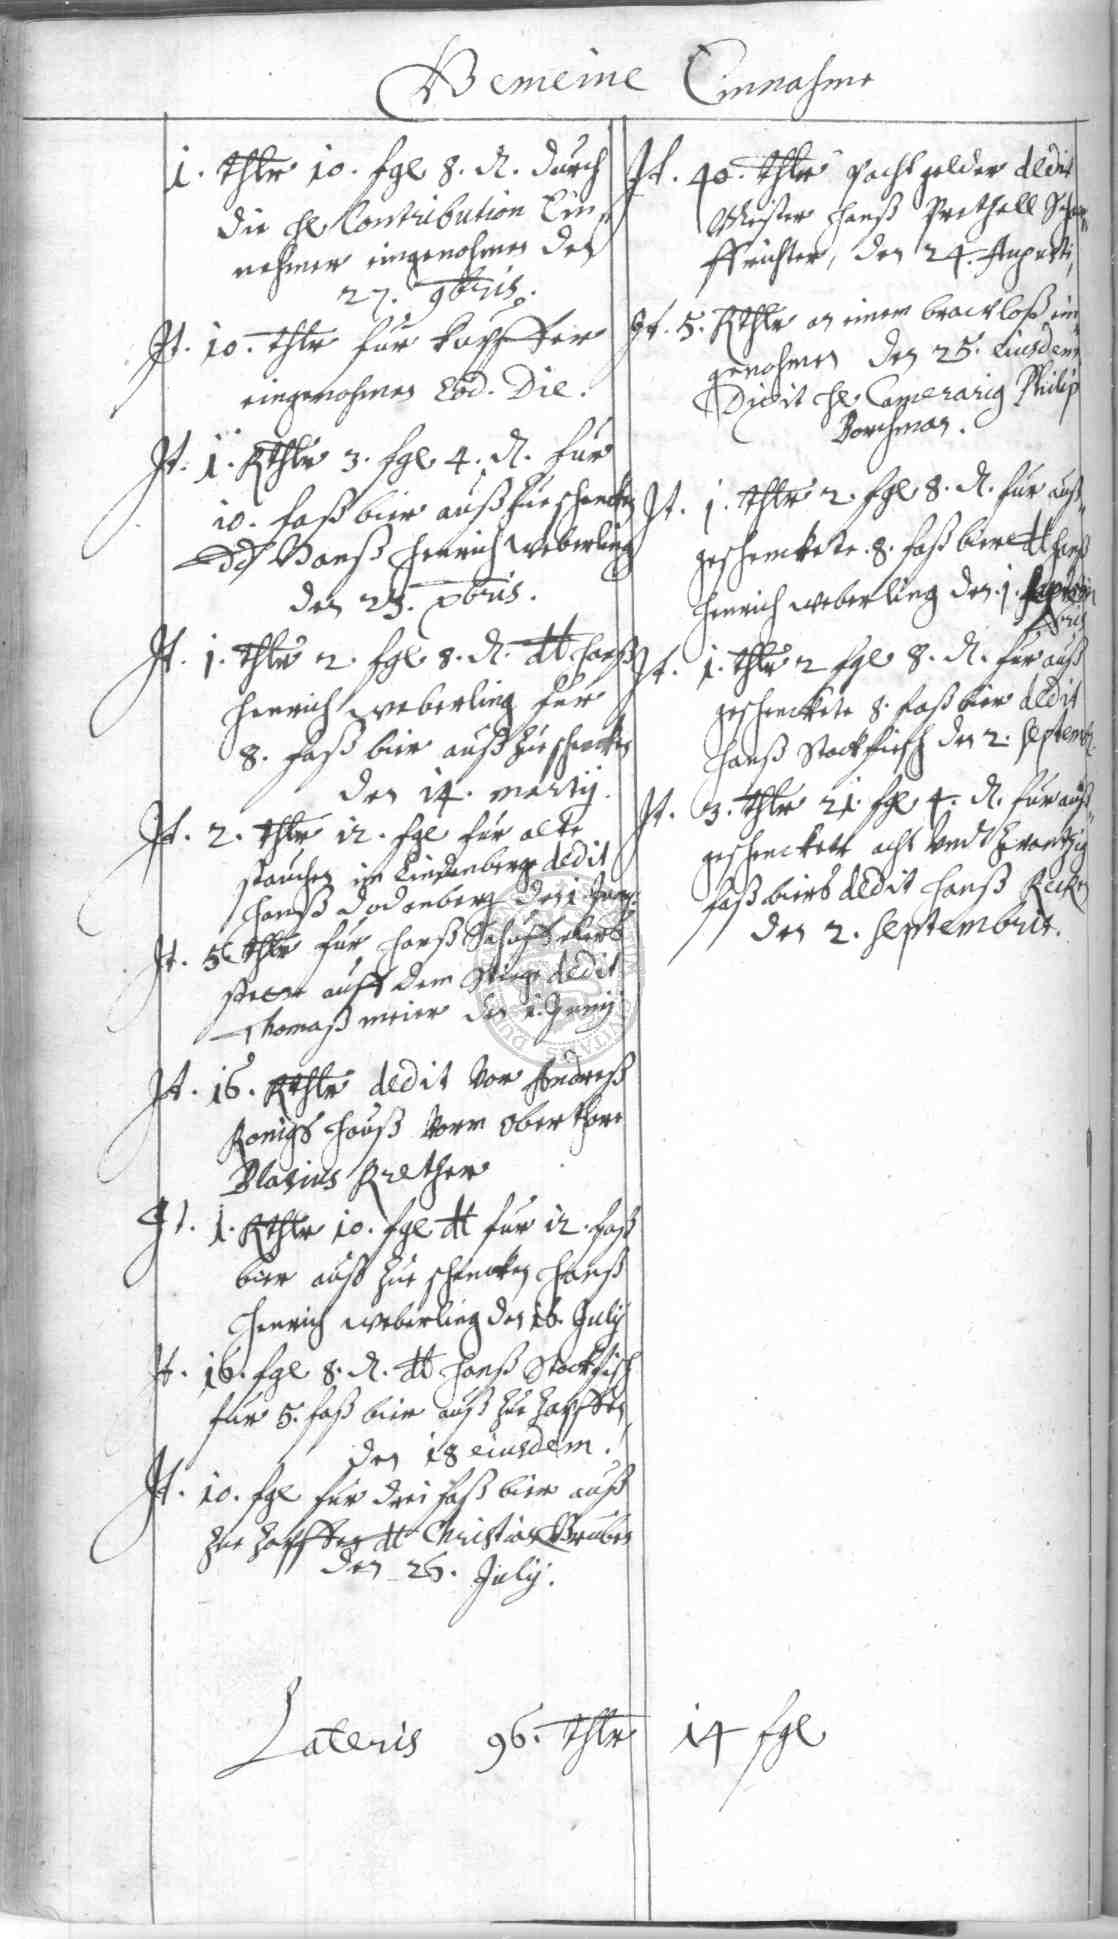 Gemeine Einnahme
1. thlr 10. fgl 8. d. durch
die H. Contribution Ein„
nehmer eingenohmen den
27. 9bris.
It. 10. thlr fur
eingenohmen Eod. Die.
It. 1. Rthlr 3. fgl 4. d. fur
10. faß bier auß zue schencken
Hanß Henrich Weberling
den 23. xbris.
It. 1. thlr 2. fgl 8. d. dt Hanß
Henrich Weberling fur
8. faß bier auß zue schencken
den 14. Martij.
It. 2. thlr 12. fgl fur alte
stauchen im Lindenberge dedit
Hanß Dodenberg den 1
It. 5 thlr fur Hanß
auff dem Stiege dedit
Thomaß Meier den 1. Junij
It. 16. Rthlr dedit vor Andreß
Konigs Hauß vorm Oberthore
Blasius
It. 1. Rthlr 10. fgl dt fur 12. faß
bier auß zue schencken Hanß
Henrich Weberling den 16. July
It. 16. fgl 8. d. dt Hanß Stockfisch
fur 5. faß bier auß zue zapffen
den 18 eiusdem.
It. 10. fgl fur drei faß bier auß
zue zapffen dt Christian Gruben
den 26. July.
It. 40. thlr pacht gelder dedit
Meister Hanß Scharff
richter, den 24. Augusti,
It. 5. Rthlr
genohmen den 25. Eiusdem
H. Camerarig Philip
Borchman.
It. 1. thlr 2. fgl 8. d. fur auß„
geschenckete 8. faß bier dt Hanß
Henrich Weberling den 1.
It. 1. thlr 2 fgl 8. d. fur auß
geschenckete 8. faß bier dedit
Hanß Stockfisch den 2. Septemb.
It. 3. thlr 21. fgl 4. d. fur auß„
geschenckete acht undt zwantzig
faß biers dedit Hanß
den 2. Septembris.
Lateris 96. thlr 14 fgl